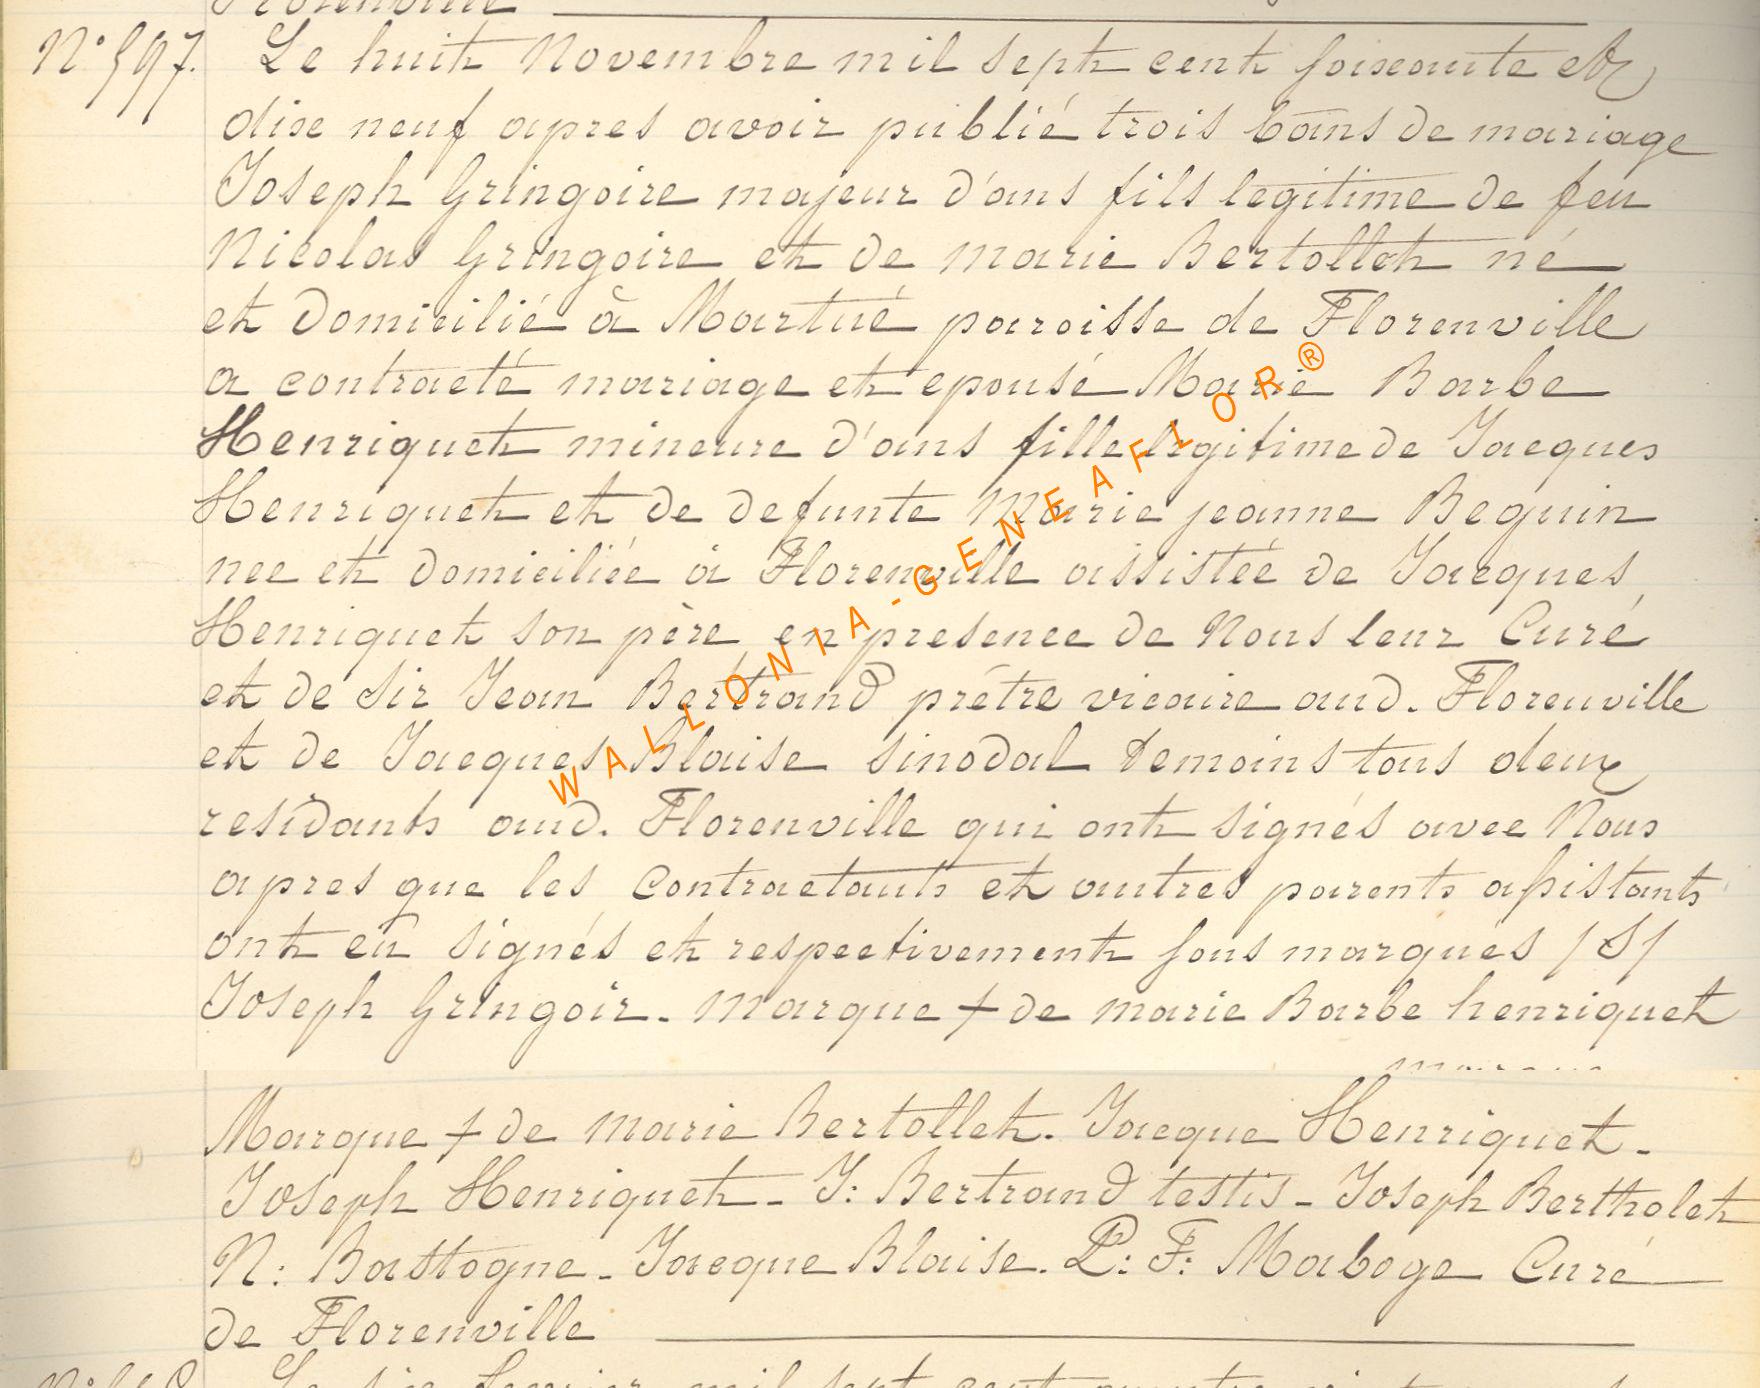 N° 597. Le huit Novembre mil sept cent soixante et
dixe neuf apres avoir publié trois bans de mariage
Joseph Gringoire majeur d'ans fils legitime de feu
Nicolas Gringoire et de marie Bertollet né
et domicilié à Martué paroisse de Florenville
a contracté mariage et epousé Marie Barbe
Henriquet mineure d'ans fille legitime de Jacques
Henriquet et de defunte Marie jeanne Bequin
nee et domiciliée à Florenville assistée de Jacques
Henriquet son père, en presence de Nous leur Curé
et de Sir Jean Bertrand prétre vicaire aud. Florenville
et de Jacques Blaise sinodal temoins tous deux
residants aud. Florenville qui ont signés avec Nous
apres que les contractants et autres parents assistants
ont eû signés et respectivement sous marqués /S/
Joseph Gringoir. Marque + de marie Barbe henriquet
Marque + de marie Bertollet. Jacque Henriquet.
Joseph Henriquet - J: Bertrand testis - Joseph Bertholet
N: Bastogne - Jacque Blaise. P: F: Maboge Curé
de Florenville
WALLONIA-GENEAFLOR®